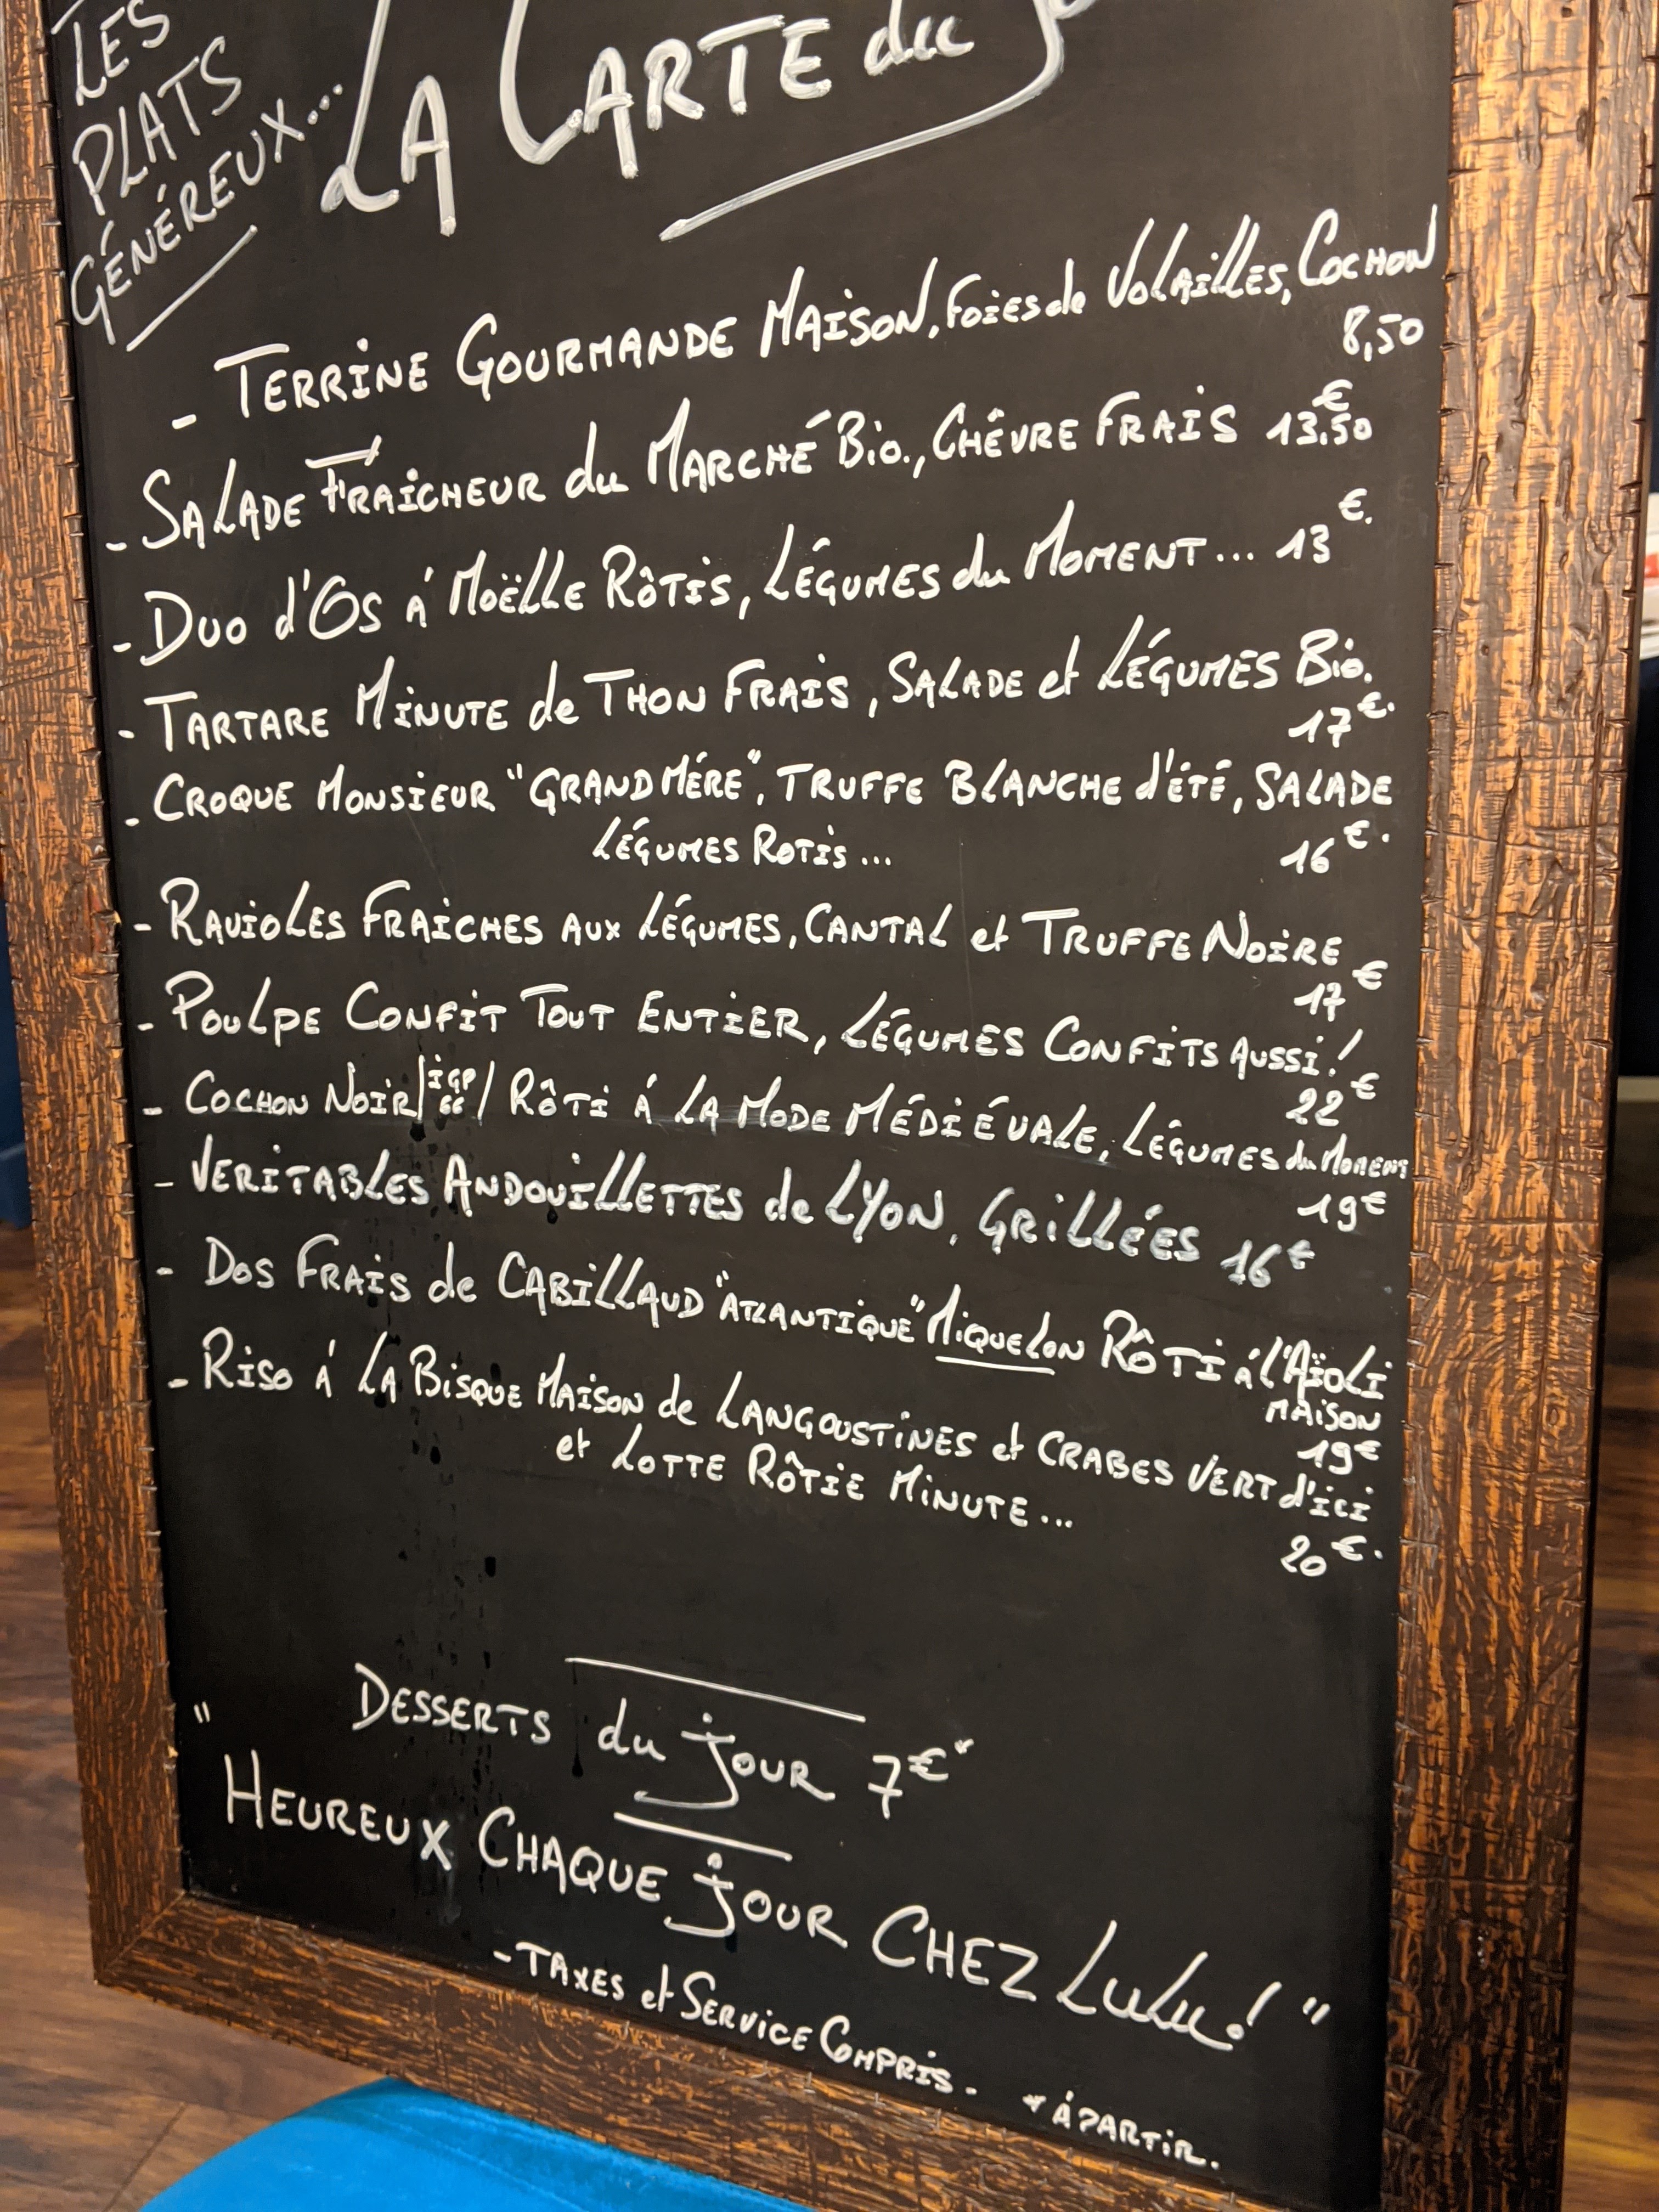 LES
PLATS
GÉNÉREUX...
LA CARTE du
- TERRINE GOURMANDE MAISON, Foies de VOLAILLES, COCHON
8,50
€
- SALADE FRAÎCHEUR du MARCHÉ Bio., CHÊVRE FRAIS 13.50
- DUO d'OS á MOËLLE RÔTIS, LÉGUMES du MOMENT... 13 €.
- TARTARE MINUTE de THON FRAIS, SALADE et LÉGUMES Bio.
17 €.
- CROQUE MONSIEUR "GRAND MÉRE", TRUFFE BLANCHE d'ÉTÉ, SALADE
LÉGUMES ROTIS... 16 €.
- RAVIOLES FRAICHES AUX LÉGUMES, CANTAL et TRUFFE NOIRE
17 €
- POULPE CONFIT TOUT ENTIER, LÉGUMES CONFITS AUSSI!
22 €
- COCHON NOIR / IGP / RÔTI Á LA MODE MÉDIÉVALE, LÉGUMES du MOMENT
19€
- VERITABLES ANDOUILLETTES de LYON, GRILLÉES 16€
- DOS FRAIS de CABILLAUD "ATLANTIQUE" MIQUELON RÔTI á l'AÏOLI
MAISON
19€
- RISO Á LA BISQUE MAISON de LANGOUSTINES et CRABES VERT d'ici
et LOTTE RÔTIE MINUTE...
20€.
DESSERTS du jOUR 7€*
" HEUREUX CHAQUE jOUR CHEZ LuLu! "
- TAXES et SERVICE COMPRIS -
* Á PARTIR.